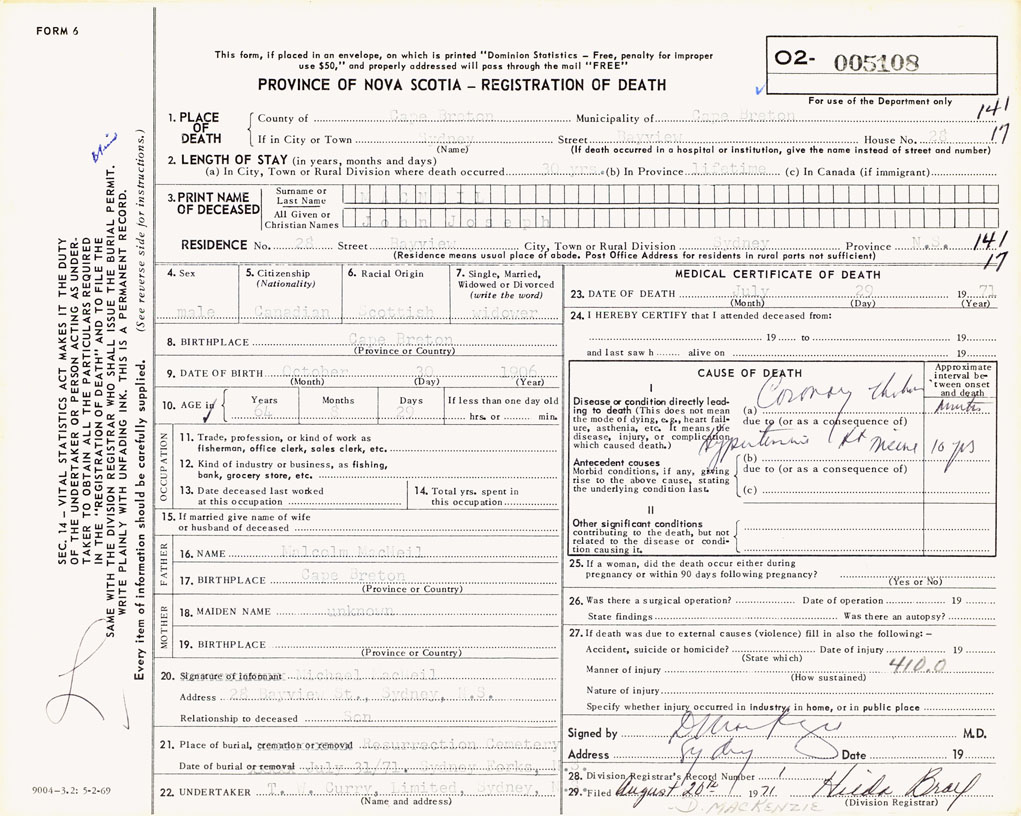 FORM 6
This form, if placed in an envelope, on which is printed "Dominion Statistics – Free, penalty for improper
use $50," and properly addressed will pass through the mail "FREE"
PROVINCE OF NOVA SCOTIA – REGISTRATION OF DEATH
O2- 005108
For use of the Department only
1. PLACE OF DEATH
County of Cape Breton Municipality of Cape Breton 141
If in City or Town Sydney Street Bayview House No. 28 17
(Name) (If death occurred in a hospital or institution, give the name instead of street and number)
2. LENGTH OF STAY (in years, months and days)
(a) In City, Town or Rural Division where death occurred 30 yrs. (b) In Province lifetime (c) In Canada (if immigrant)
3. PRINT NAME OF DECEASED
Surname or Last Name MACNEIL
All Given or Christian Names John Joseph
RESIDENCE No. 28 Street Bayview City, Town or Rural Division Sydney Province N.S. 141
(Residence means usual place of abode. Post Office Address for residents in rural parts not sufficient) 17
4. Sex
male
5. Citizenship
(Nationality)
Canadian
6. Racial Origin
Scottish
7. Single, Married,
Widowed or Divorced
(write the word)
widower
8. BIRTHPLACE Cape Breton
(Province or Country)
9. DATE OF BIRTH October 30 1906
(Month) (Day) (Year)
10. AGE in
Years Months Days If less than one day old
64 8 29 hrs. or min.
OCCUPATION
11. Trade, profession, or kind of work as
fisherman, office clerk, sales clerk, etc.
12. Kind of industry or business, as fishing,
bank, grocery store, etc.
13. Date deceased last worked
at this occupation
14. Total yrs. spent in
this occupation
15. If married give name of wife
or husband of deceased
FATHER
16. NAME Malcolm MacNeil
17. BIRTHPLACE Cape Breton
(Province or Country)
MOTHER
18. MAIDEN NAME unknown
19. BIRTHPLACE
(Province or Country)
20. Signature of informant Michael MacNeil
Address 28 Bayview St., Sydney, N.S.
Relationship to deceased Son
21. Place of burial, cremation or removal Resurrection Cemetery
Date of burial or removal July 31/71, Sydney Forks, N.S.
22. UNDERTAKER T. W. Curry, Limited, Sydney, N
(Name and address)
MEDICAL CERTIFICATE OF DEATH
23. DATE OF DEATH July 29 1971
(Month) (Day) (Year)
24. I HEREBY CERTIFY that I attended deceased from:
19 to 19
and last saw h alive on 19
CAUSE OF DEATH
Approximate
interval be-
tween onset
and death
I
Disease or condition directly lead-
ing to death (This does not mean
the mode of dying, e.g., heart fail-
ure, asthenia, etc. It means the
disease, injury, or complication
which caused death.)
(a) Coronary
due to (or as a consequence of)
Antecedent causes
Morbid conditions, if any, giving
rise to the above cause, stating
the underlying condition last.
(b) 10 yrs
due to (or as a consequence of)
(c)
II
Other significant conditions
contributing to the death, but not
related to the disease or condi-
tion causing it.
25. If a woman, did the death occur either during
pregnancy or within 90 days following pregnancy?
(Yes or No)
26. Was there a surgical operation? Date of operation 19
State findings Was there an autopsy?
27. If death was due to external causes (violence) fill in also the following: –
Accident, suicide or homicide? Date of injury 19
(State which)
Manner of injury 410.0
(How sustained)
Nature of injury
Specify whether injury occurred in industry, in home, or in public place
Signed by M.D.
Address Sydney Date 19
28. Division Registrar's Record Number 1
29. Filed August 20th 1971 Hilda
(Division Registrar)
D. MACKENZIE
SEC. 14 – VITAL STATISTICS ACT MAKES IT THE DUTY
OF THE UNDERTAKER OR PERSON ACTING AS UNDER-
TAKER TO OBTAIN ALL THE PARTICULARS REQUIRED
IN THE "REGISTRATION OF DEATH" AND TO FILE THE
SAME WITH THE DIVISION REGISTRAR WHO SHALL ISSUE THE BURIAL PERMIT.
WRITE PLAINLY WITH UNFADING INK. THIS IS A PERMANENT RECORD.
Every item of information should be carefully supplied. (See reverse side for instructions.)
9004-3.2: 5-2-69